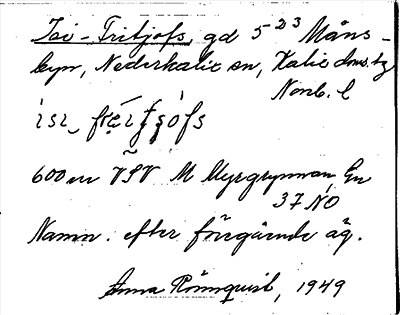 Isi-Fritjofs, gd 5²³ Måns-
byn, Nederkalix sn, Kalix dms. tg
Norrb. l
600 m VSV M Myrgrynnan En
37 NO
Namn. efter föregående äg.
Anna Rönnquist, 1949